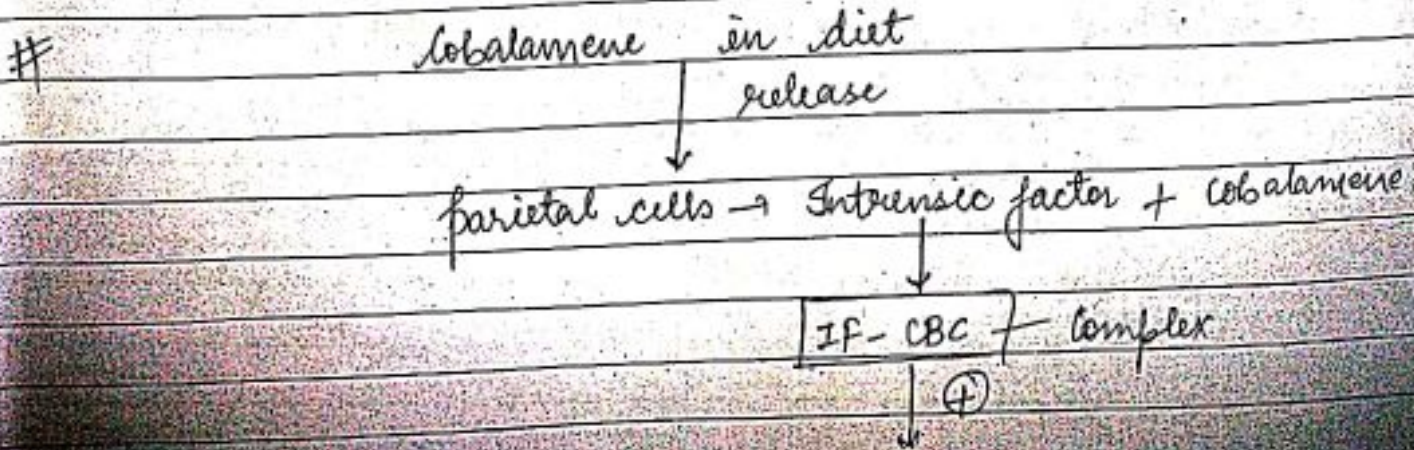 # Cobalamene in diet
release
parietal cells → Intrensic factor + Cobalameine
IF - CBC — Complex
⊕